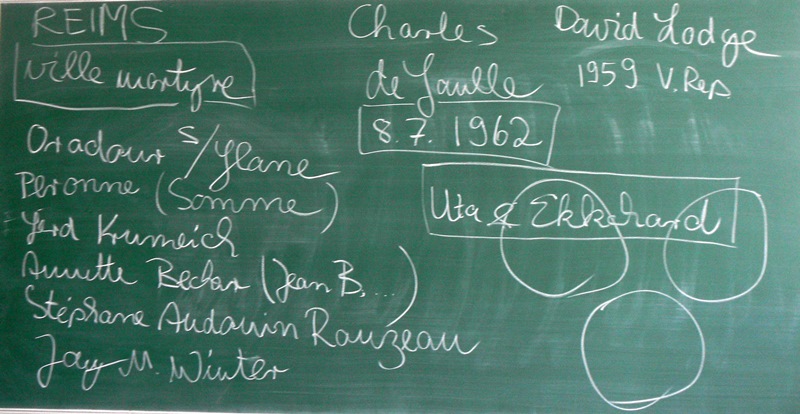 REIMS
ville martyre
Oradour s/Glane
Peronne (Somme)
Gerd Krumeich
Annette Becker (Jean B, ...)
Stéphane Audouin Rouzeau
Jay M. Winter
Charles
de Gaulle
8.7. 1962
David Lodge
1959 V. Rep
Uta & Ekkehard